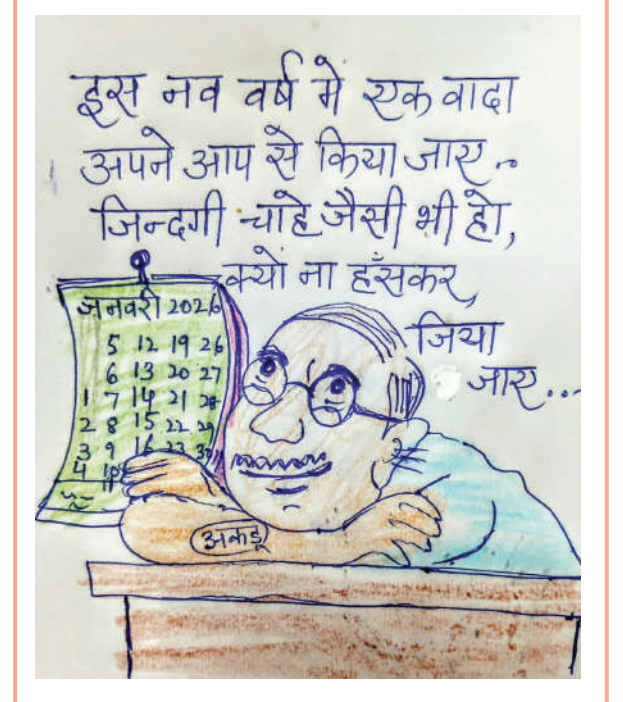 इस नव वर्ष मे एक वादा
अपने आप से किया जाए..
जिन्दगी चाहे जैसी भी हो,
क्यों ना हँसकर,
जिया
जाए...
जनवरी 2026
5 12 19 26
6 13 20 27
1 7 14 21 28
2 8 15 22 29
3 9 16 23 30
4 10
अकडू